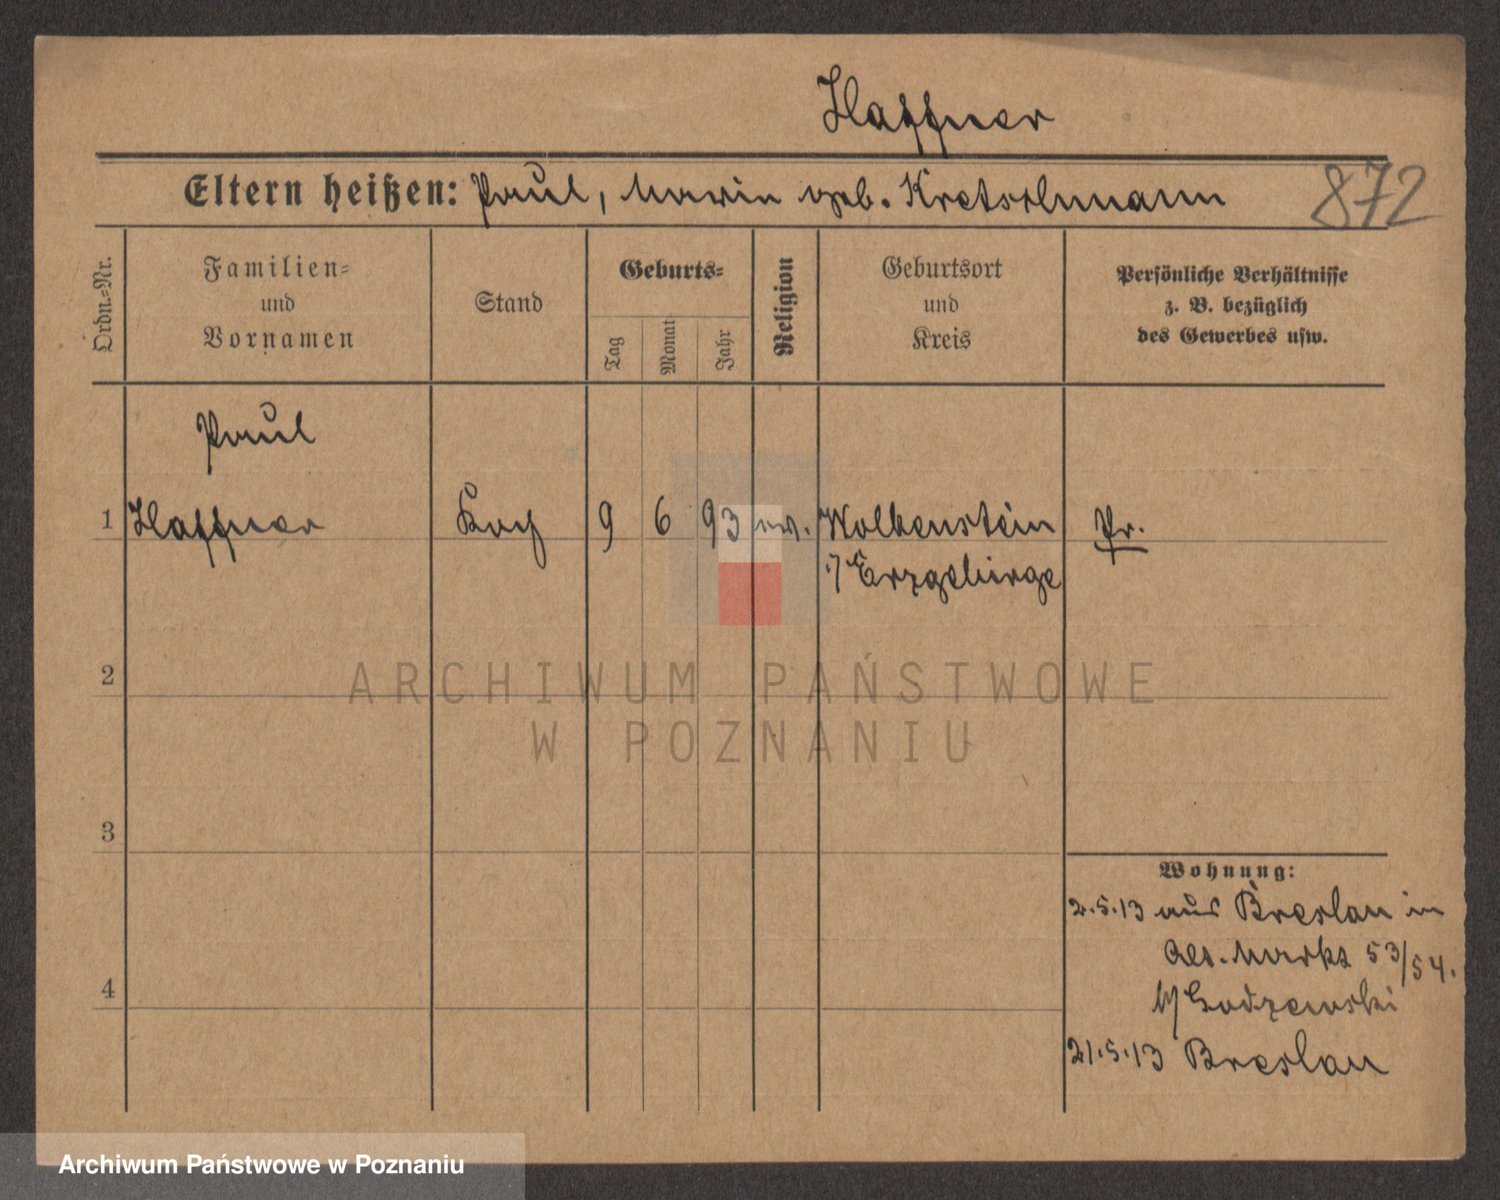 Haffner
Eltern heißen: Paul, Maria geb. Kretschmann
872
Ordn.-Nr.
Familien-
und
Vornamen
Stand
Geburts-
Tag
Monat
Jahr
Religion
Geburtsort
und
Kreis
Persönliche Verhältnisse
z. B. bezüglich
des Gewerbes usw.
Paul
1 Haffner Koch 9 6 93 ev. Wolkenstein Pr.
i/Erzgebirge
2
3
4
Wohnung:
2.5.13 aus Breslau in
Alt. Markt 53/54.
b/ Godzewski
21.5.13 Breslau
ARCHIWUM PAŃSTWOWE
W POZNANIU
Archiwum Państwowe w Poznaniu